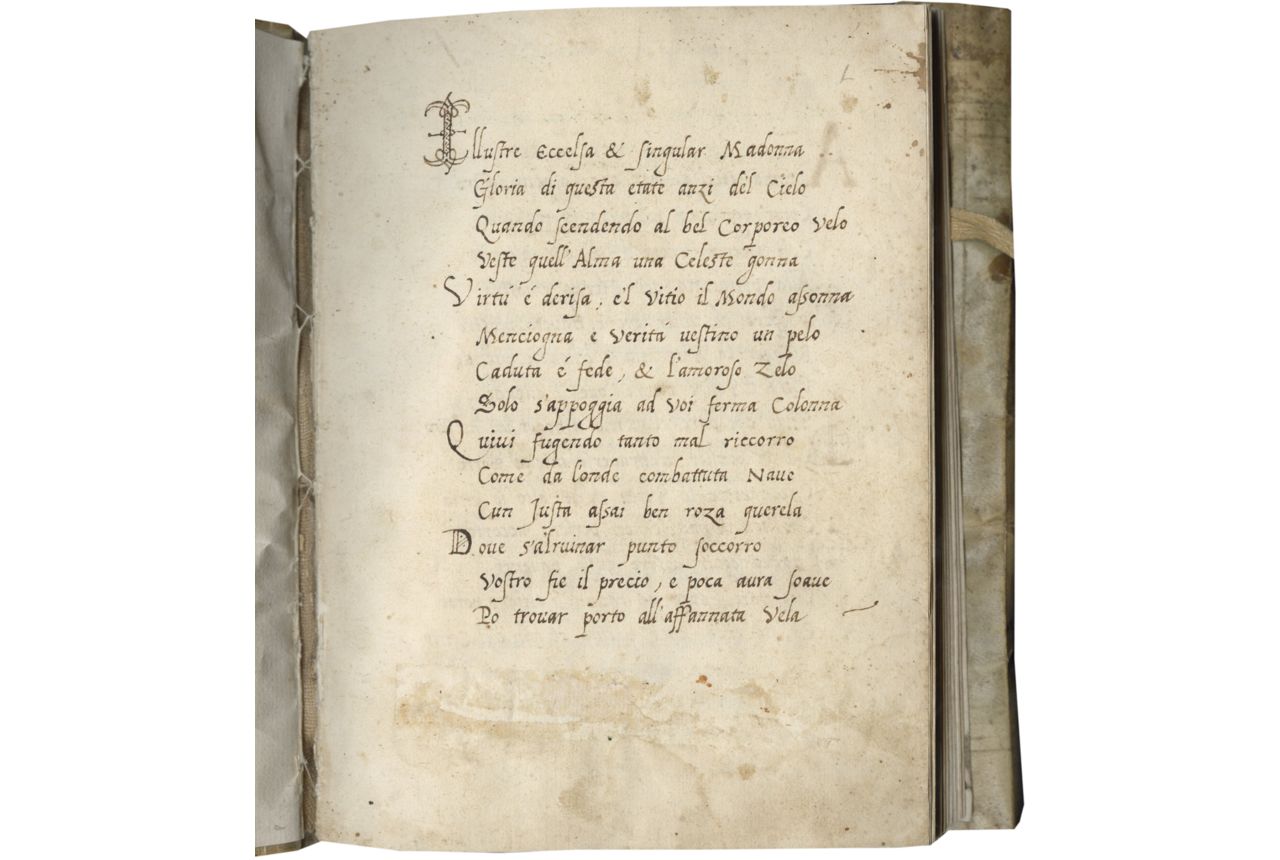 Illustre Eccelsa & singular Madonna
Gloria di questa etate anzi del Cielo
Quando scendendo al bel Corporeo velo
Veste quell'Alma una Celeste gonna
Virtú é derisa, e'l vitio il Mondo assonna
Menciogna e veritá vestino un pelo
Caduta é fede, & l'amoroso Zelo
Solo s'appoggia ad voi ferma Colonna
Quiui fugendo tanto mal riccorro
Come da l'onde combattuta Naue
Cun Justa assai ben roza querela
Doue s'alruinar punto soccorro
Vostro fie il precio, e poca aura soaue
Po trouar porto all'affannata Vela